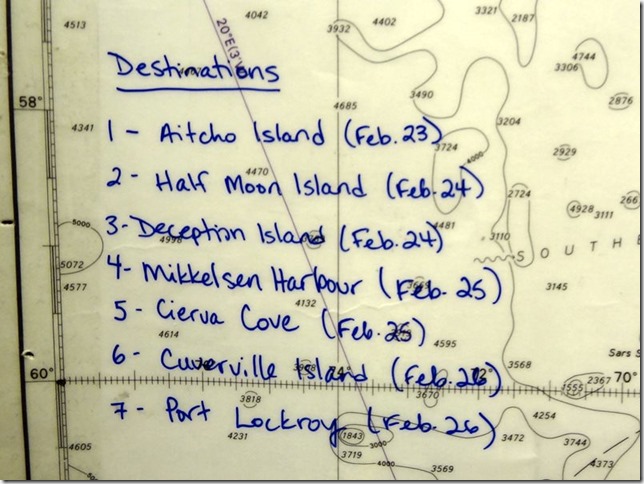 4042 3321 2187
4513 20°E(3' 3932 4744
3306
Destinations
3490 2876
58° 4685 3204
4341 1 - Aitcho Island (Feb. 23)
3724 4000 2929
4470
2 - Half Moon Island (Feb. 24)
2724 4928 3111
5000 4481
3 - Deception Island (Feb. 24)
3110 SOUTHE
5072
4 - Mikkelsen Harbour (Feb. 25)
4577 4132 3145
5 - Cierva Cove (Feb. 25)
4614 4595
6 - Cuverville Island (Feb. 26)
3568 Sars S
60° 74° 72° 70°
2367
3555
3818 3670
7 - Port Lockroy (Feb. 26)
4254
4231 1843 3472 3744
4605 3000
3719 4000 3569 4373